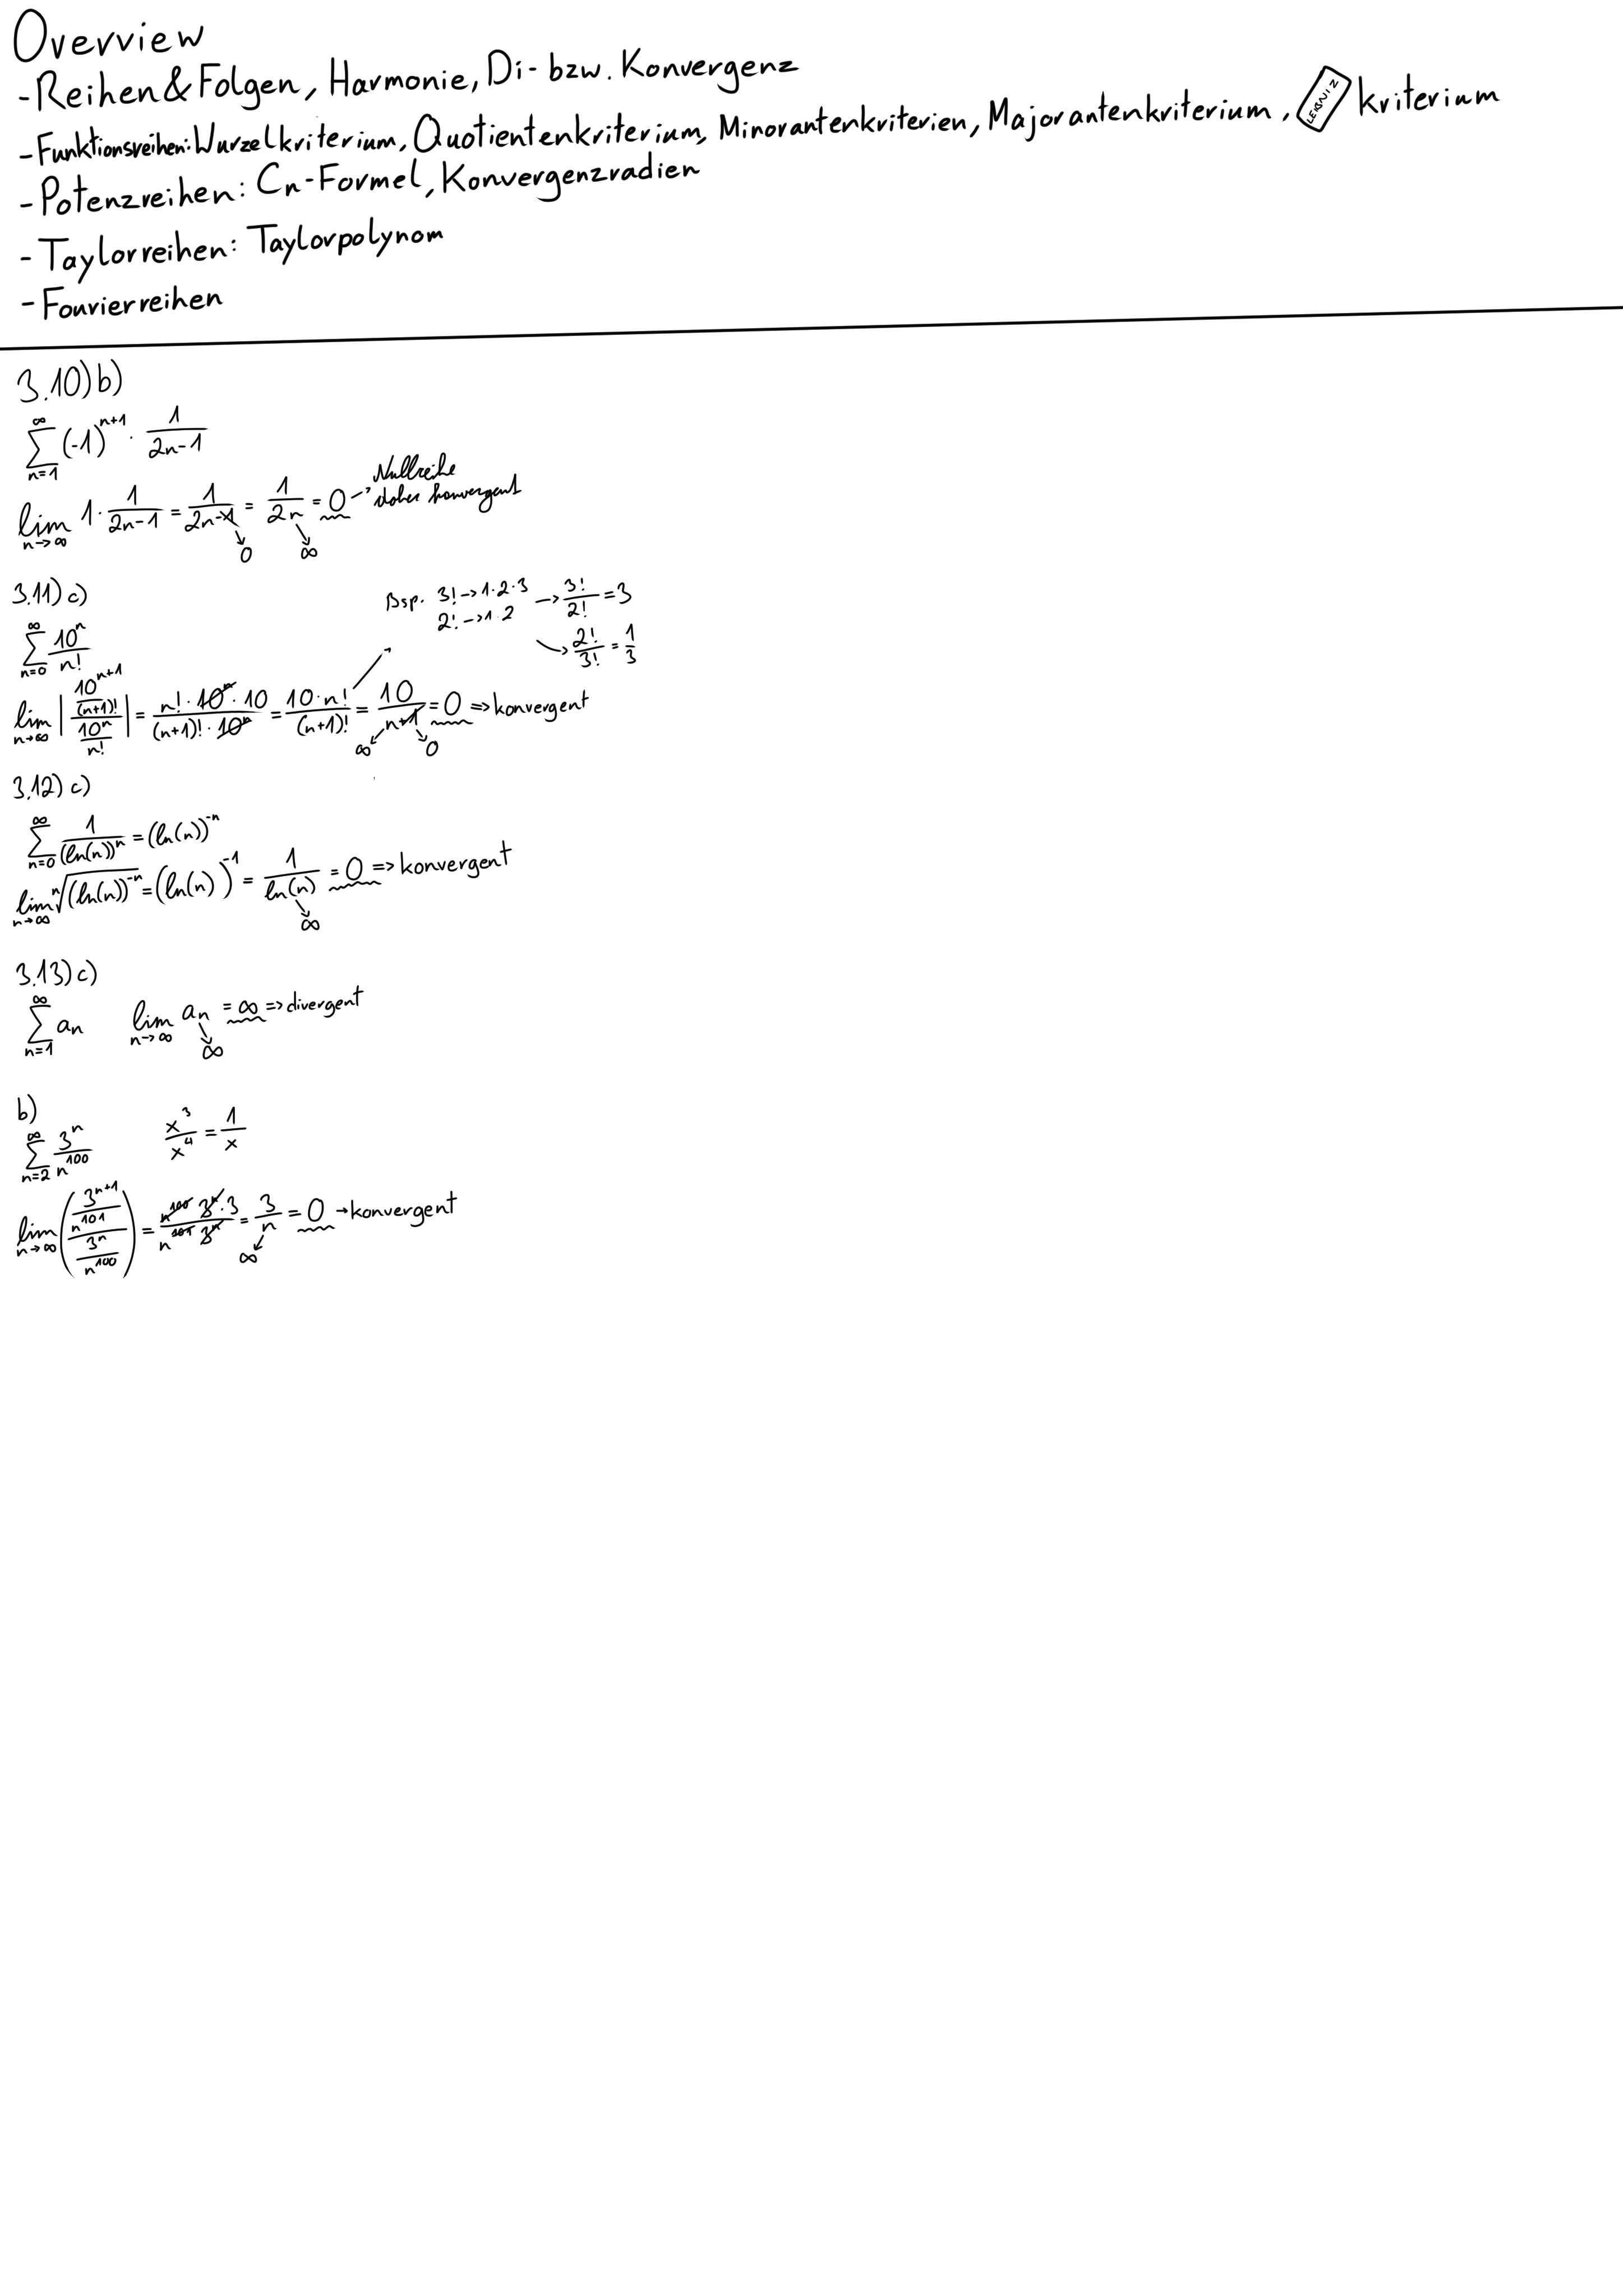 Overview
-Reihen & Folgen, Harmonie, Di- bzw. Konvergenz
-Funktionsreihen: Wurzelkriterium, Quotientenkriterium, Minorantenkriterien, Majorantenkriterium, LEIBNIZ kriterium
-Potenzreihen: Cn-Formel, Konvergenzradien
-Taylorreihen: Taylorpolynom
-Fourierreihen
3.10) b)
∞∑n=1 (-1)^(n+1) · 1/(2n-1)
lim n→∞ 1 · 1/(2n-1) = 1/(2n-1) = 1/(2n) = 0 → Nullreihe
daher konvergent
→0 →∞
3.11) c)
Bsp. 3! → 1·2·3 → 3!/2! = 3
2! → 1·2 → 2!/3! = 1/3
∞∑n=0 10^n/n!
lim n→∞ |(10^(n+1)/(n+1)!)/(10^n/n!)| = (n!·10^n·10)/((n+1)!·10^n) = (10·n!)/((n+1)!) = 10/(n+1) = 0 => konvergent
∞ 0
3.12) c)
∞∑n=0 1/(ln(n))^n = (ln(n))^-n
lim n→∞ ⁿ√((ln(n))^-n) = (ln(n))^-1 = 1/ln(n) = 0 => konvergent
∞
3.13) c)
∞∑n=1 an lim n→∞ an = ∞ => divergent
∞
b)
∞∑n=2 3^n/n^100 x^3/x^4 = 1/x
lim n→∞ ((3^(n+1)/n^101)/(3^n/n^100)) = (n^100 3^n·3)/(n^101 3^n) = 3/n = 0 → konvergent
∞